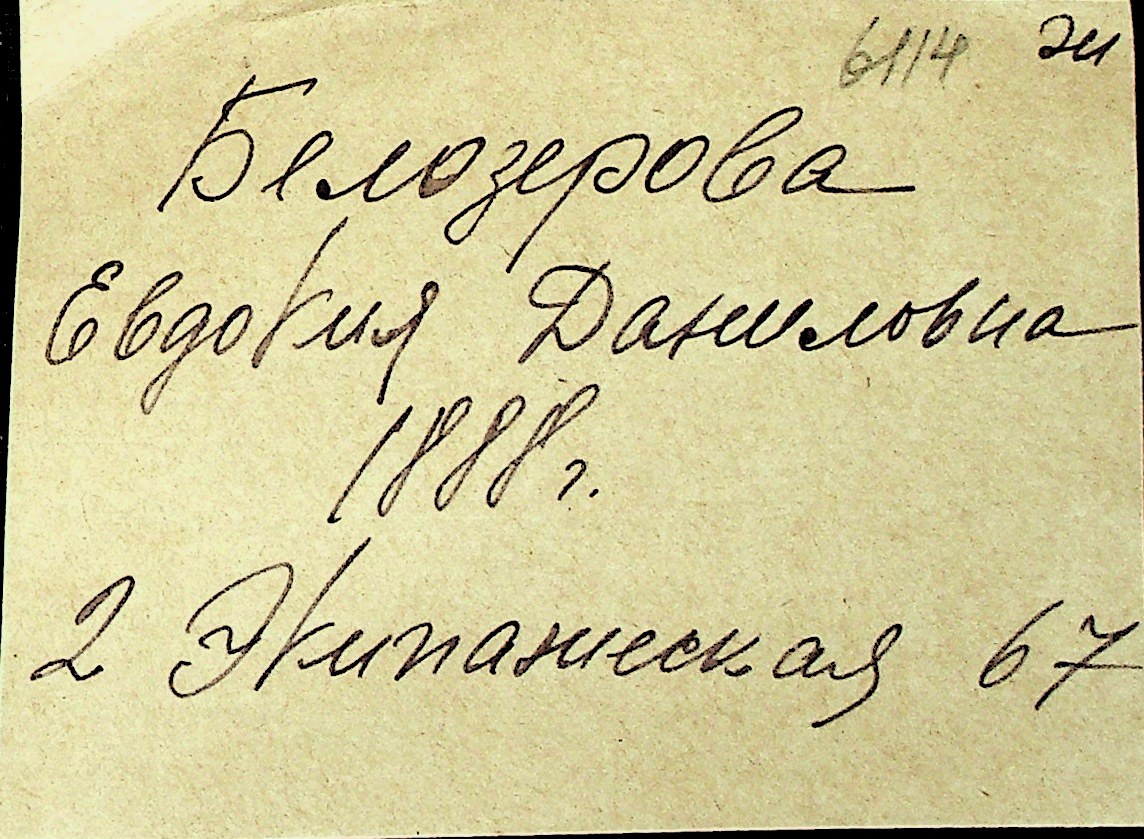 6114 эк
Белозерова
Евдокия Даниловна
1888 г.
2 Экипажеская 67